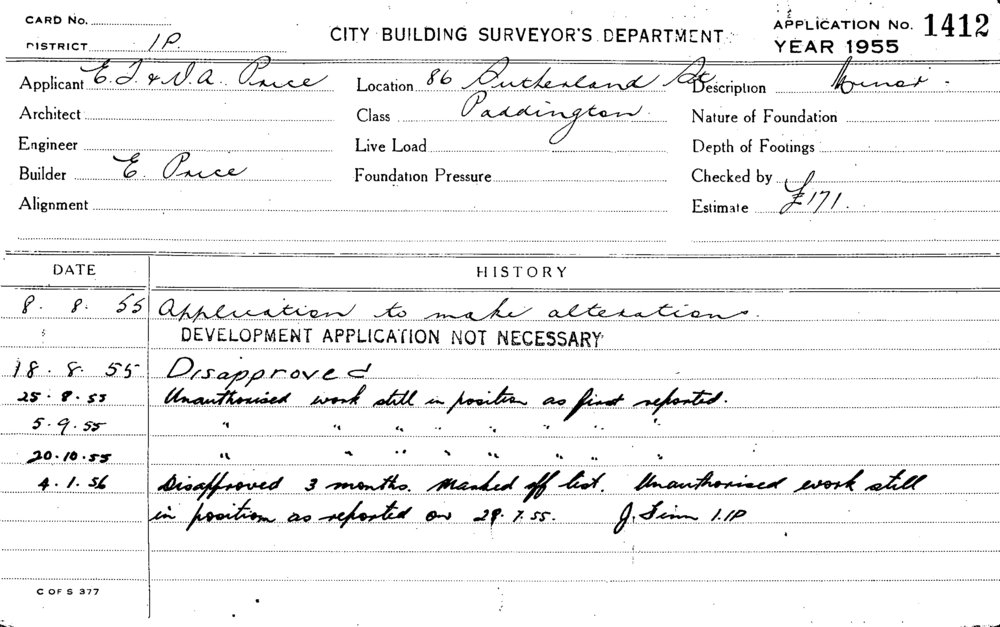 CARD No.
DISTRICT 1P.
CITY BUILDING SURVEYOR'S DEPARTMENT
APPLICATION No. 1412
YEAR 1955
Applicant E. J. & V. A. Price Location 86 Sutherland St Description Minor.
Architect Class Paddington. Nature of Foundation
Engineer Live Load Depth of Footings
Builder E. Price Foundation Pressure Checked by
Alignment Estimate £171.
DATE HISTORY
8. 8. 55 Application to make alterations.
DEVELOPMENT APPLICATION NOT NECESSARY
18. 8. 55 Disapproved
25. 8. 55 Unauthorised work still in position as first reported.
5. 9. 55 " " " " " " " "
20.10.55 " " " " " " " "
4. 1. 56 Disapproved 3 months. Marked off list. Unauthorised work still
in position as reported on 29.7.55. J. Sinn 1.1P
C OF S 377